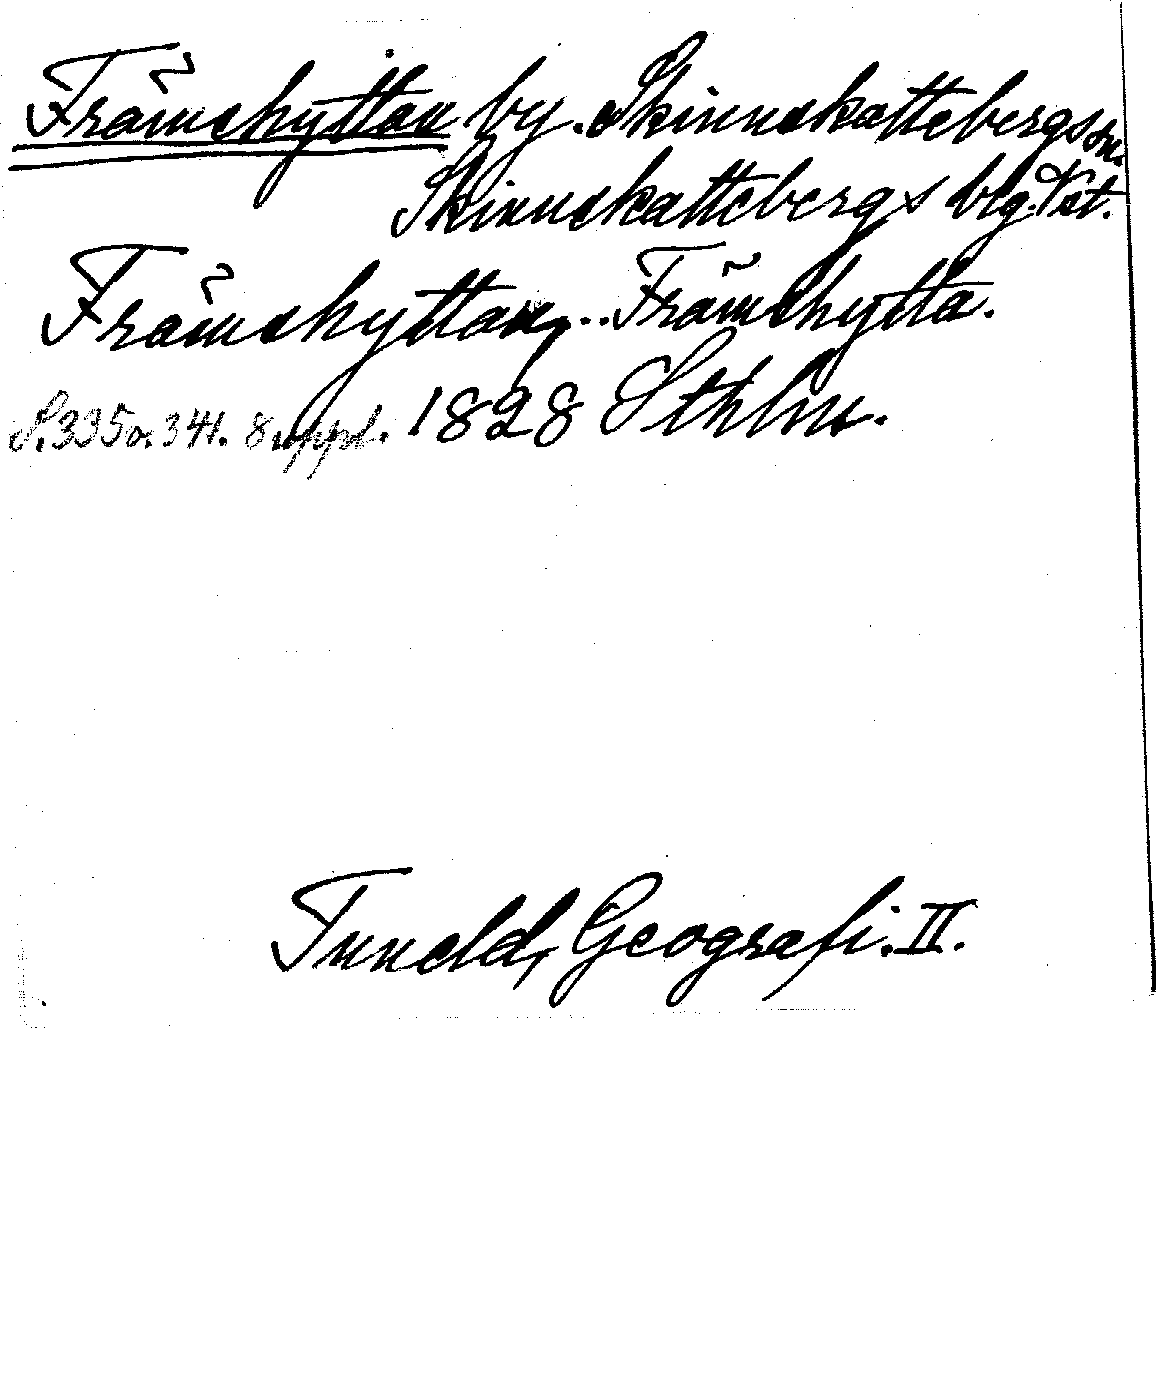 Främshyttan by. Skinnskattebergs sn.
Skinnskattebergs blg. Vst.
Främshyttan, .. Främshytta.
S. 335 o. 341. 8 uppl. 1828 Sthlm.
Tuneld, Geografi. II.